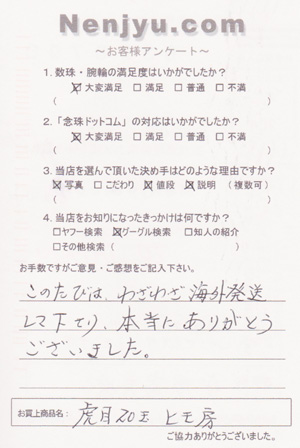 Nenjyu.com
～お客様アンケート～
1. 数珠・腕輪の満足度はいかがでしたか？
☒大変満足 □満足 □普通 □不満
( )
2. 「念珠ドットコム」の対応はいかがでしたか？
☒大変満足 □満足 □普通 □不満
( )
3. 当店を選んで頂いた決め手はどのような理由ですか？
☒写真 □こだわり ☒値段 ☒説明 （複数可）
( )
4. 当店をお知りになったきっかけは何ですか？
□ヤフー検索 ☒グーグル検索 □知人の紹介
□その他検索( )
お手数ですがご意見・ご感想をご記入下さい。
このたびは、わざわざ海外発送
して下さり、本当にありがとう
ございました。
お買上商品名： 虎目20玉 ヒモ房
ご協力ありがとうございました。